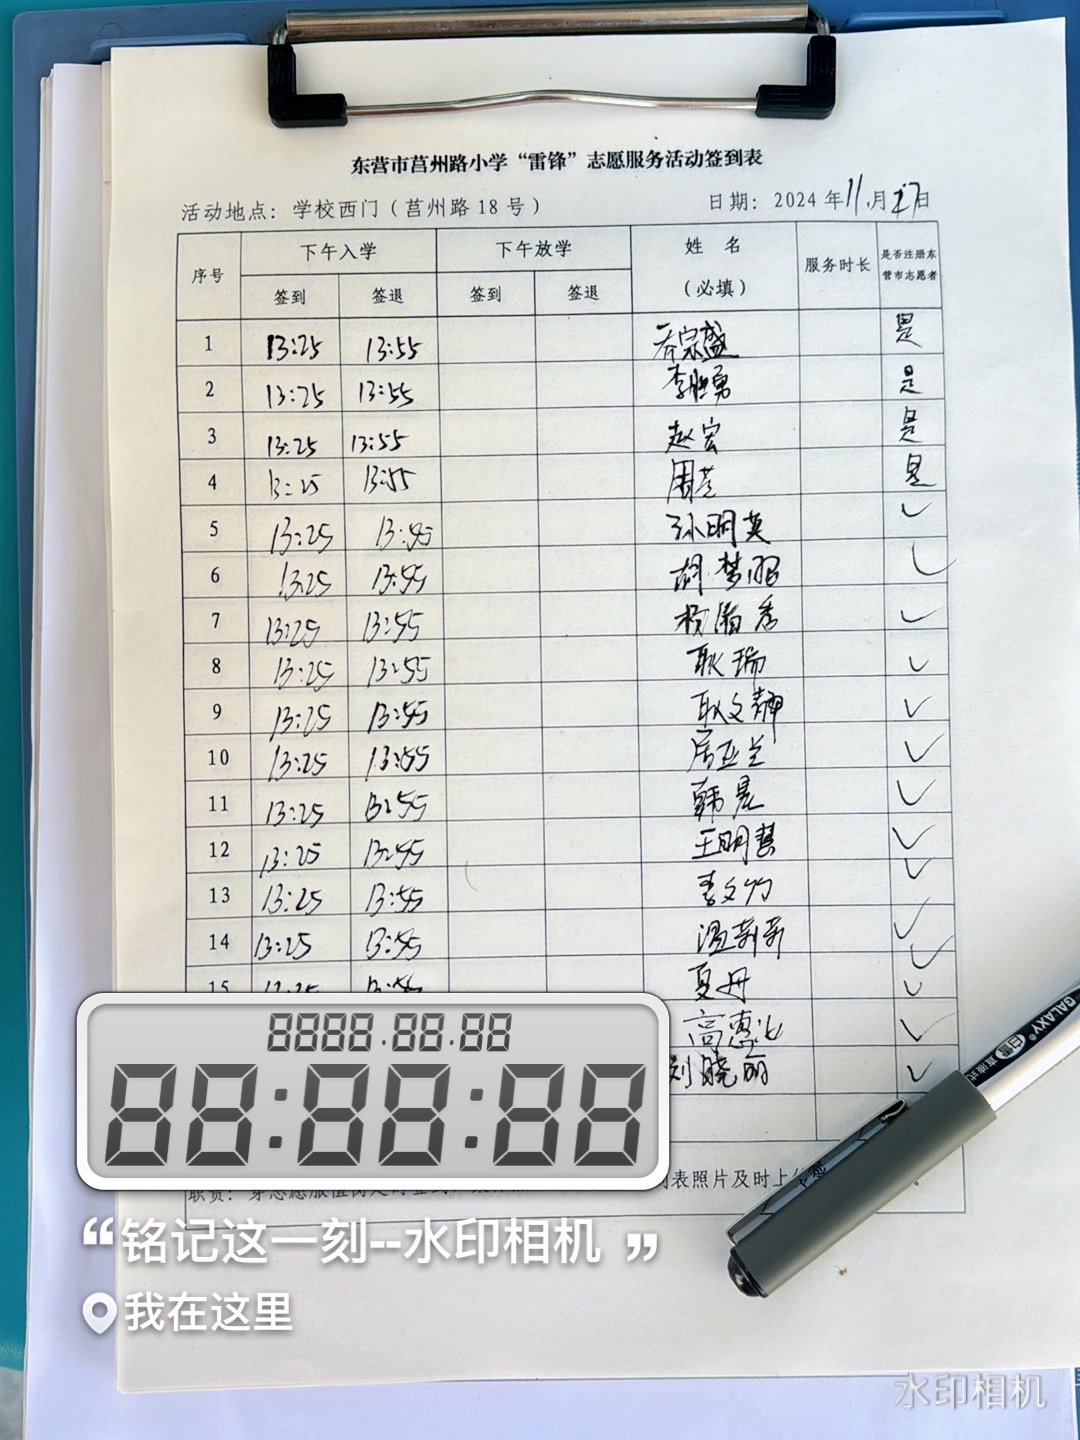 东营市莒州路小学“雷锋”志愿服务活动签到表
活动地点：学校西门（莒州路18号） 日期：2024年11月27日
序号 下午入学 下午放学 姓 名 （必填） 服务时长 是否注册东营市志愿者
签到 签退 签到 签退
1 13:25 13:55 是
2 13:25 13:55 李胜勇 是
3 13:25 13:55 赵宏 是
4 13:25 13:55 周芝 是
5 13:25 13:55 孙明英 ✓
6 13:25 13:55 胡梦 ✓
7 13:25 13:55 ✓
8 13:25 13:55 耿瑞 ✓
9 13:25 13:55 耿文静 ✓
10 13:25 13:55 ✓
11 13:25 13:55 韩晃 ✓
12 13:25 13:55 王明慧 ✓
13 13:25 13:55 ✓
14 13:25 13:55 温莉莉 ✓
15 13:25 13:55 夏丹 ✓
高惠 ✓
刘晓丽 ✓
8888.88.88
88:88:88
职责：
表照片及时上
“铭记这一刻--水印相机”
我在这里
GALAXY
水印相机